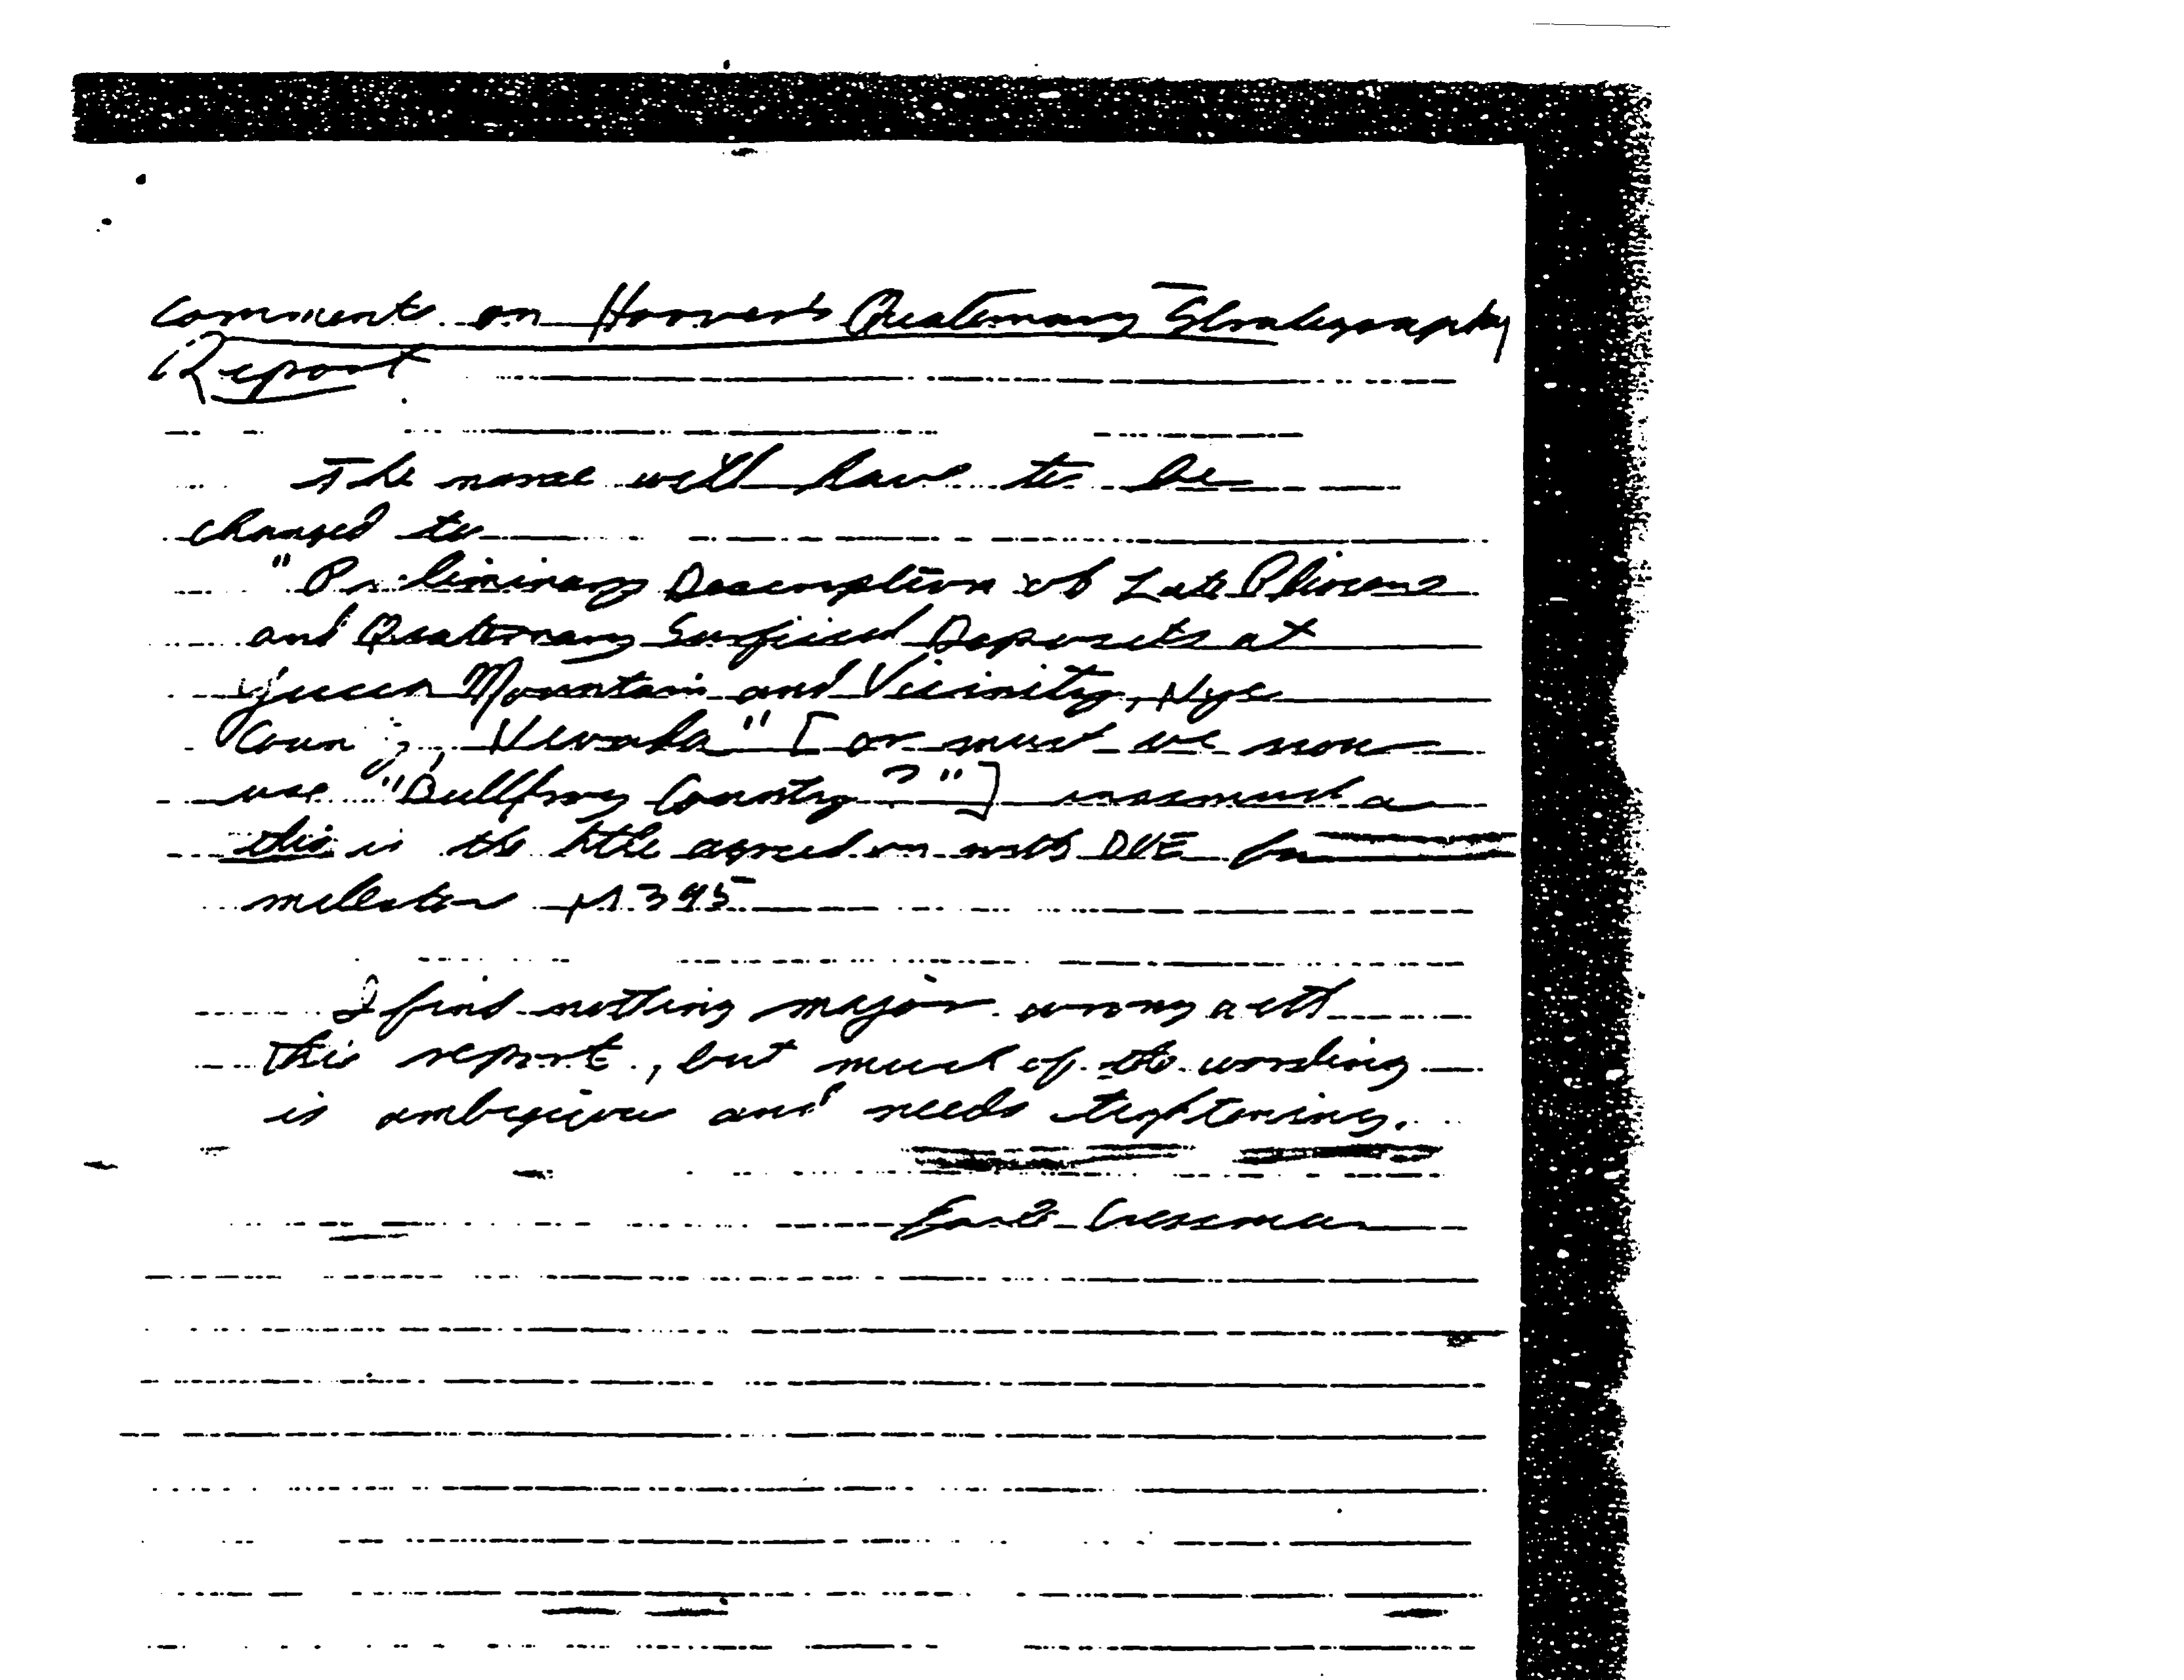 Comments on Hoover's Quaternary Stratigraphy
Report
The name will have to be
changed to
"Preliminary Description of Late Pliocene
and Quaternary Surficial Deposits at
Yucca Mountain and Vicinity, Nye
County, Nevada" [or must we now
use "Bullfrog County?"] inasmuch as
this is the title agreed on with DOE for
milestone M395
I find nothing major wrong with
this report, but much of the wording
is ambiguous and needs tightening.
Earle Cressman